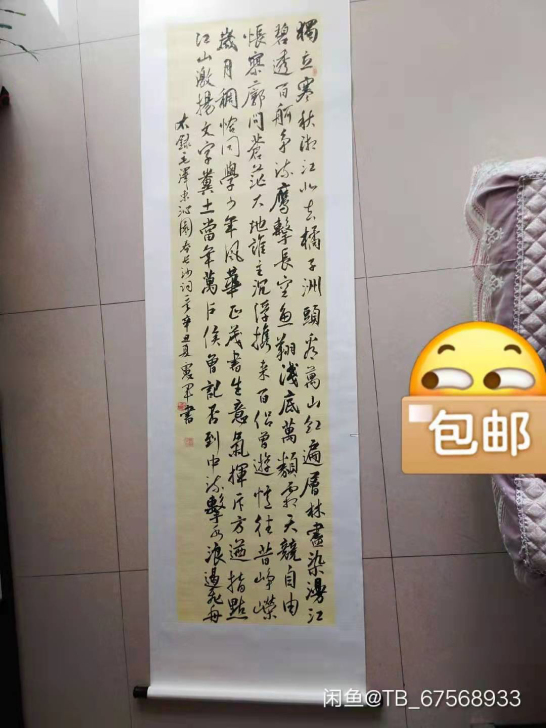 獨立寒秋湘江北去橘子洲頭看萬山紅遍層林盡染漫江
碧透百舸争流鷹擊長空魚翔淺底萬類霜天競自由
悵寥廓問蒼茫大地誰主沉浮攜来百侣曾遊憶往昔崢嶸
歲月稠恰同學少年風華正茂書生意氣揮斥方遒指點
江山激揚文字糞土當年萬户侯曾記否到中流擊水浪遏飛舟
右録毛澤東沁園春長沙詞辛丑夏軍書
包邮
闲鱼@TB_67568933